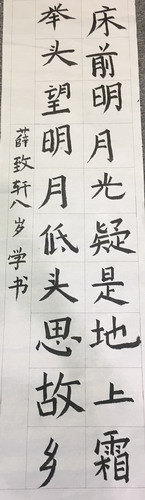 床前明月光疑是地上霜
举头望明月低头思故乡
薛致轩八岁学书